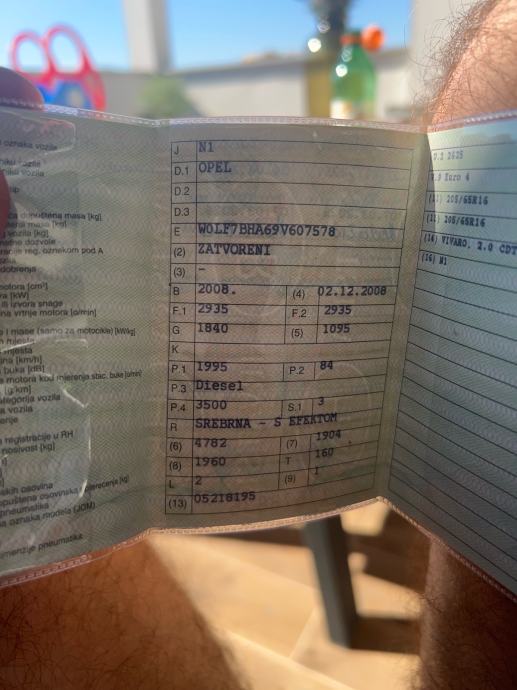 oznaka vozila
vozila
dopuštena masa [kg]
masa [kg]
vozila [kg]
dozvole
reg. oznakom pod A
odobrenja
motora [cm³]
[kW]
ili izvora snage
vrtnje motora [o/min]
i mase (samo za motocikle) [kW/kg]
mjesta
[km/h]
buka [dB]
motora kod mjerenja stac. buke [o/min]
[g/km]
kategorija vozila
vozila
registracije u RH
nosivost [kg]
osovina
dopuštena osovinska
pneumatika
oznaka modela (JOM)
dimenzije pneumatika
J N1
D.1 OPEL
D.2
D.3
E W0LF7BHA69V607578
(2) ZATVORENI
(3) -
B 2008. (4) 02.12.2008
F.1 2935 F.2 2935
G 1840 (5) 1095
K
P.1 1995 P.2 84
P.3 Diesel
P.4 3500 S.1 3
R SREBRNA - S EFEKTOM
(6) 4782 (7) 1904
(8) 1960 T 160
L 2 (9) 1
(13) 05218195
U.2 2625
V.9 Euro 4
(11) 205/65R16
(11) 205/65R16
(14) VIVARO, 2.0 CDT
(16) N1